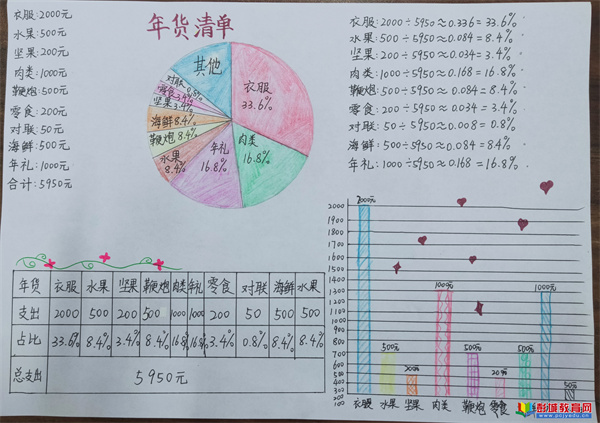 年货清单
衣服:2000元
水果:500元
坚果:200元
肉类:1000元
鞭炮:500元
零食:200元
对联:50元
海鲜:500元
年礼:1000元
合计:5950元
其他
衣服
33.6%
肉类
16.8%
年礼
16.8%
水果
8.4%
鞭炮 8.4%
海鲜 8.4%
坚果 3.4%
零食 3.4%
对联 0.8%
衣服:2000÷5950≈0.336=33.6%
水果:500÷5950≈0.084=8.4%
坚果:200÷5950≈0.034=3.4%
肉类:1000÷5950≈0.168=16.8%
鞭炮:500÷5950≈0.084=8.4%
零食:200÷5950≈0.034=3.4%
对联:50÷5950≈0.008=0.8%
海鲜:500÷5950≈0.084=8.4%
年礼:1000÷5950≈0.168=16.8%
年货 衣服 水果 坚果 鞭炮 肉类 年礼 零食 对联 海鲜 水果
支出 2000 500 200 500 1000 1000 200 50 500 500
占比 33.6% 8.4% 3.4% 8.4% 16.8% 16.8% 3.4% 0.8% 8.4% 8.4%
总支出 5950元
2000
1900
1800
1700
1600
1500
1400
1300
1200
1100
1000
900
800
700
600
500
400
300
200
100
2000元
500元
200元
1000元
500元
200元
500元
1000元
50元
衣服 水果 坚果 肉类 鞭炮 零食
彭城教育网
www.pcjyedu.cn